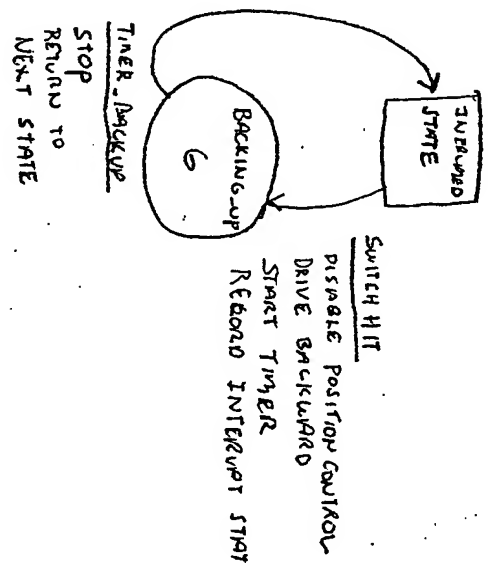 INTERUPTED
STATE
SWITCH HIT
DISABLE POSITION CONTROL
DRIVE BACKWARD
START TIMER
RECORD INTERUPT STAT
BACKING_UP
6
TIMER_BACKUP
STOP
RETURN TO
NEXT STATE